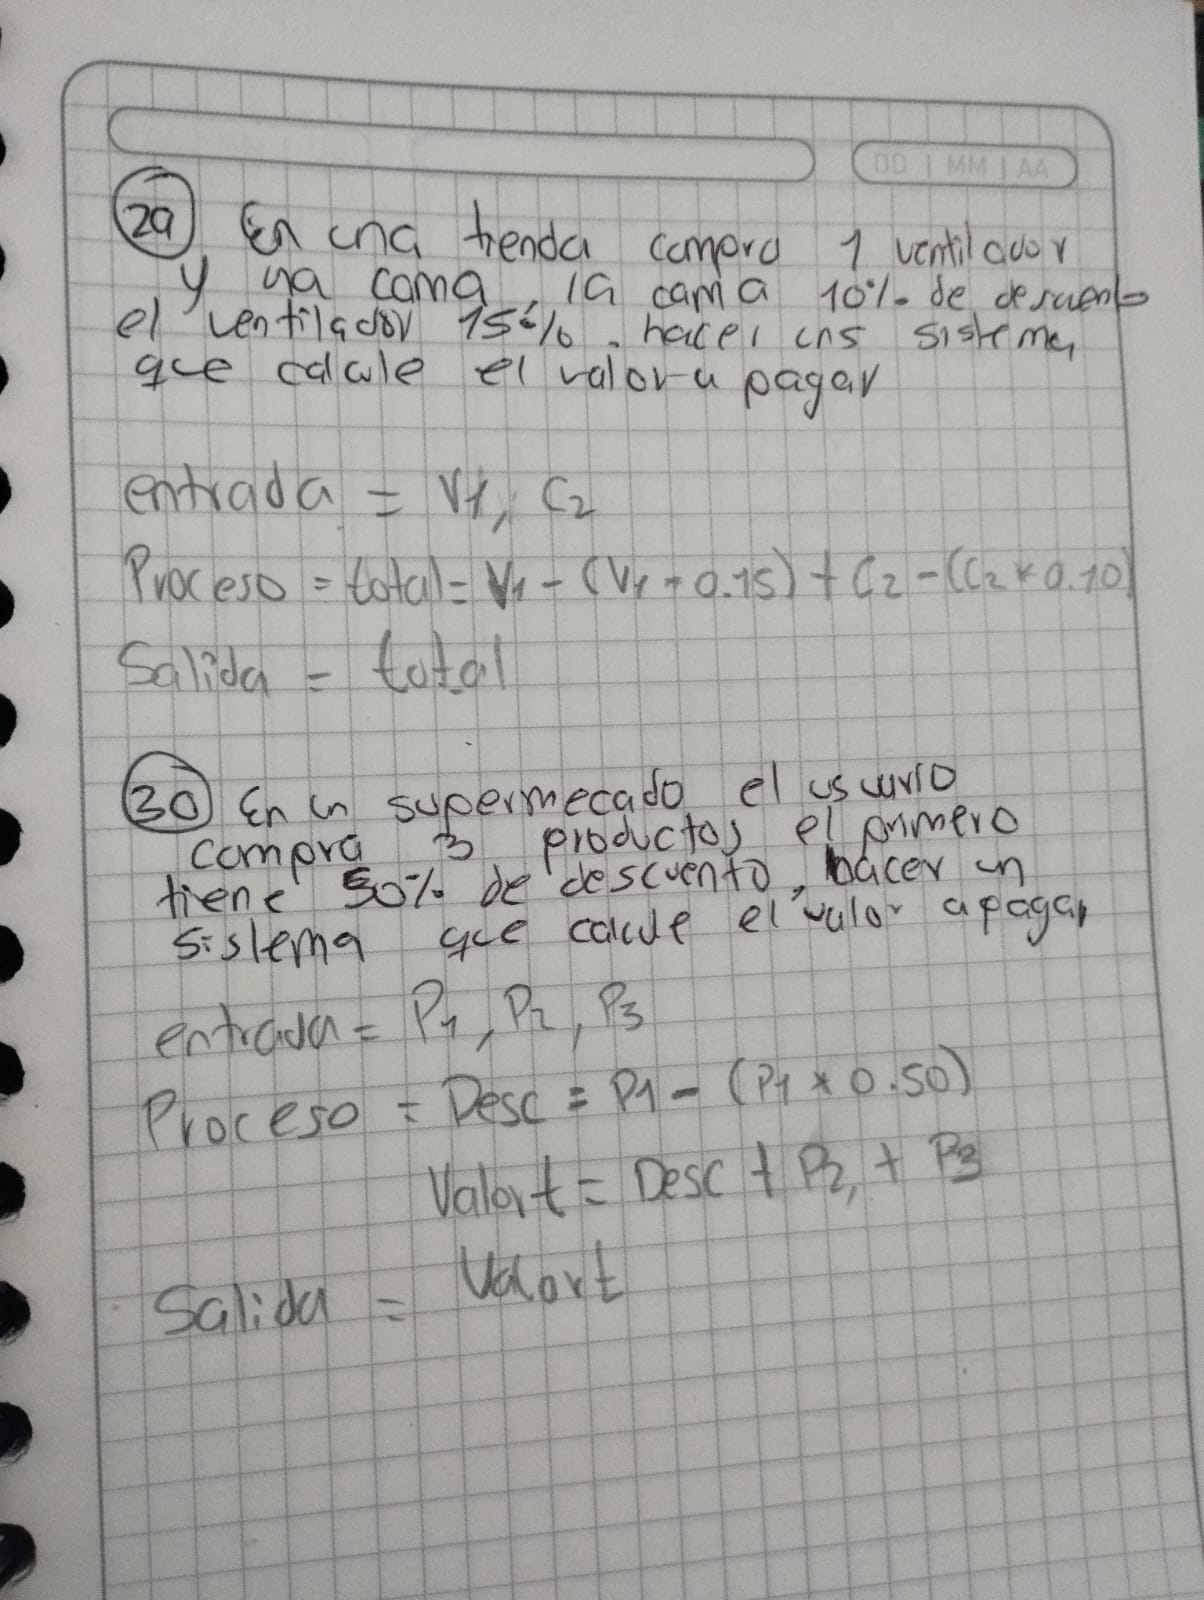 DD | MM | AA
29 En una tienda compra 1 ventilador
y una cama, la cama 10% de descuento
el ventilador 15%. hacer uns sistema
que calcule el valor a pagar
entrada = V1, C2
Proceso = total = V1 - (V1 * 0.15) + C2 - (C2 * 0.10)
Salida = total
30 En un supermecado el usuario
compra 3 productos el primero
tiene 50% de descuento, hacer un
sistema que calcule el valor a pagar
entrada = P1, P2, P3
Proceso = Desc = P1 - (P1 * 0.50)
Valort = Desc + P2, + P3
Salida = Valort